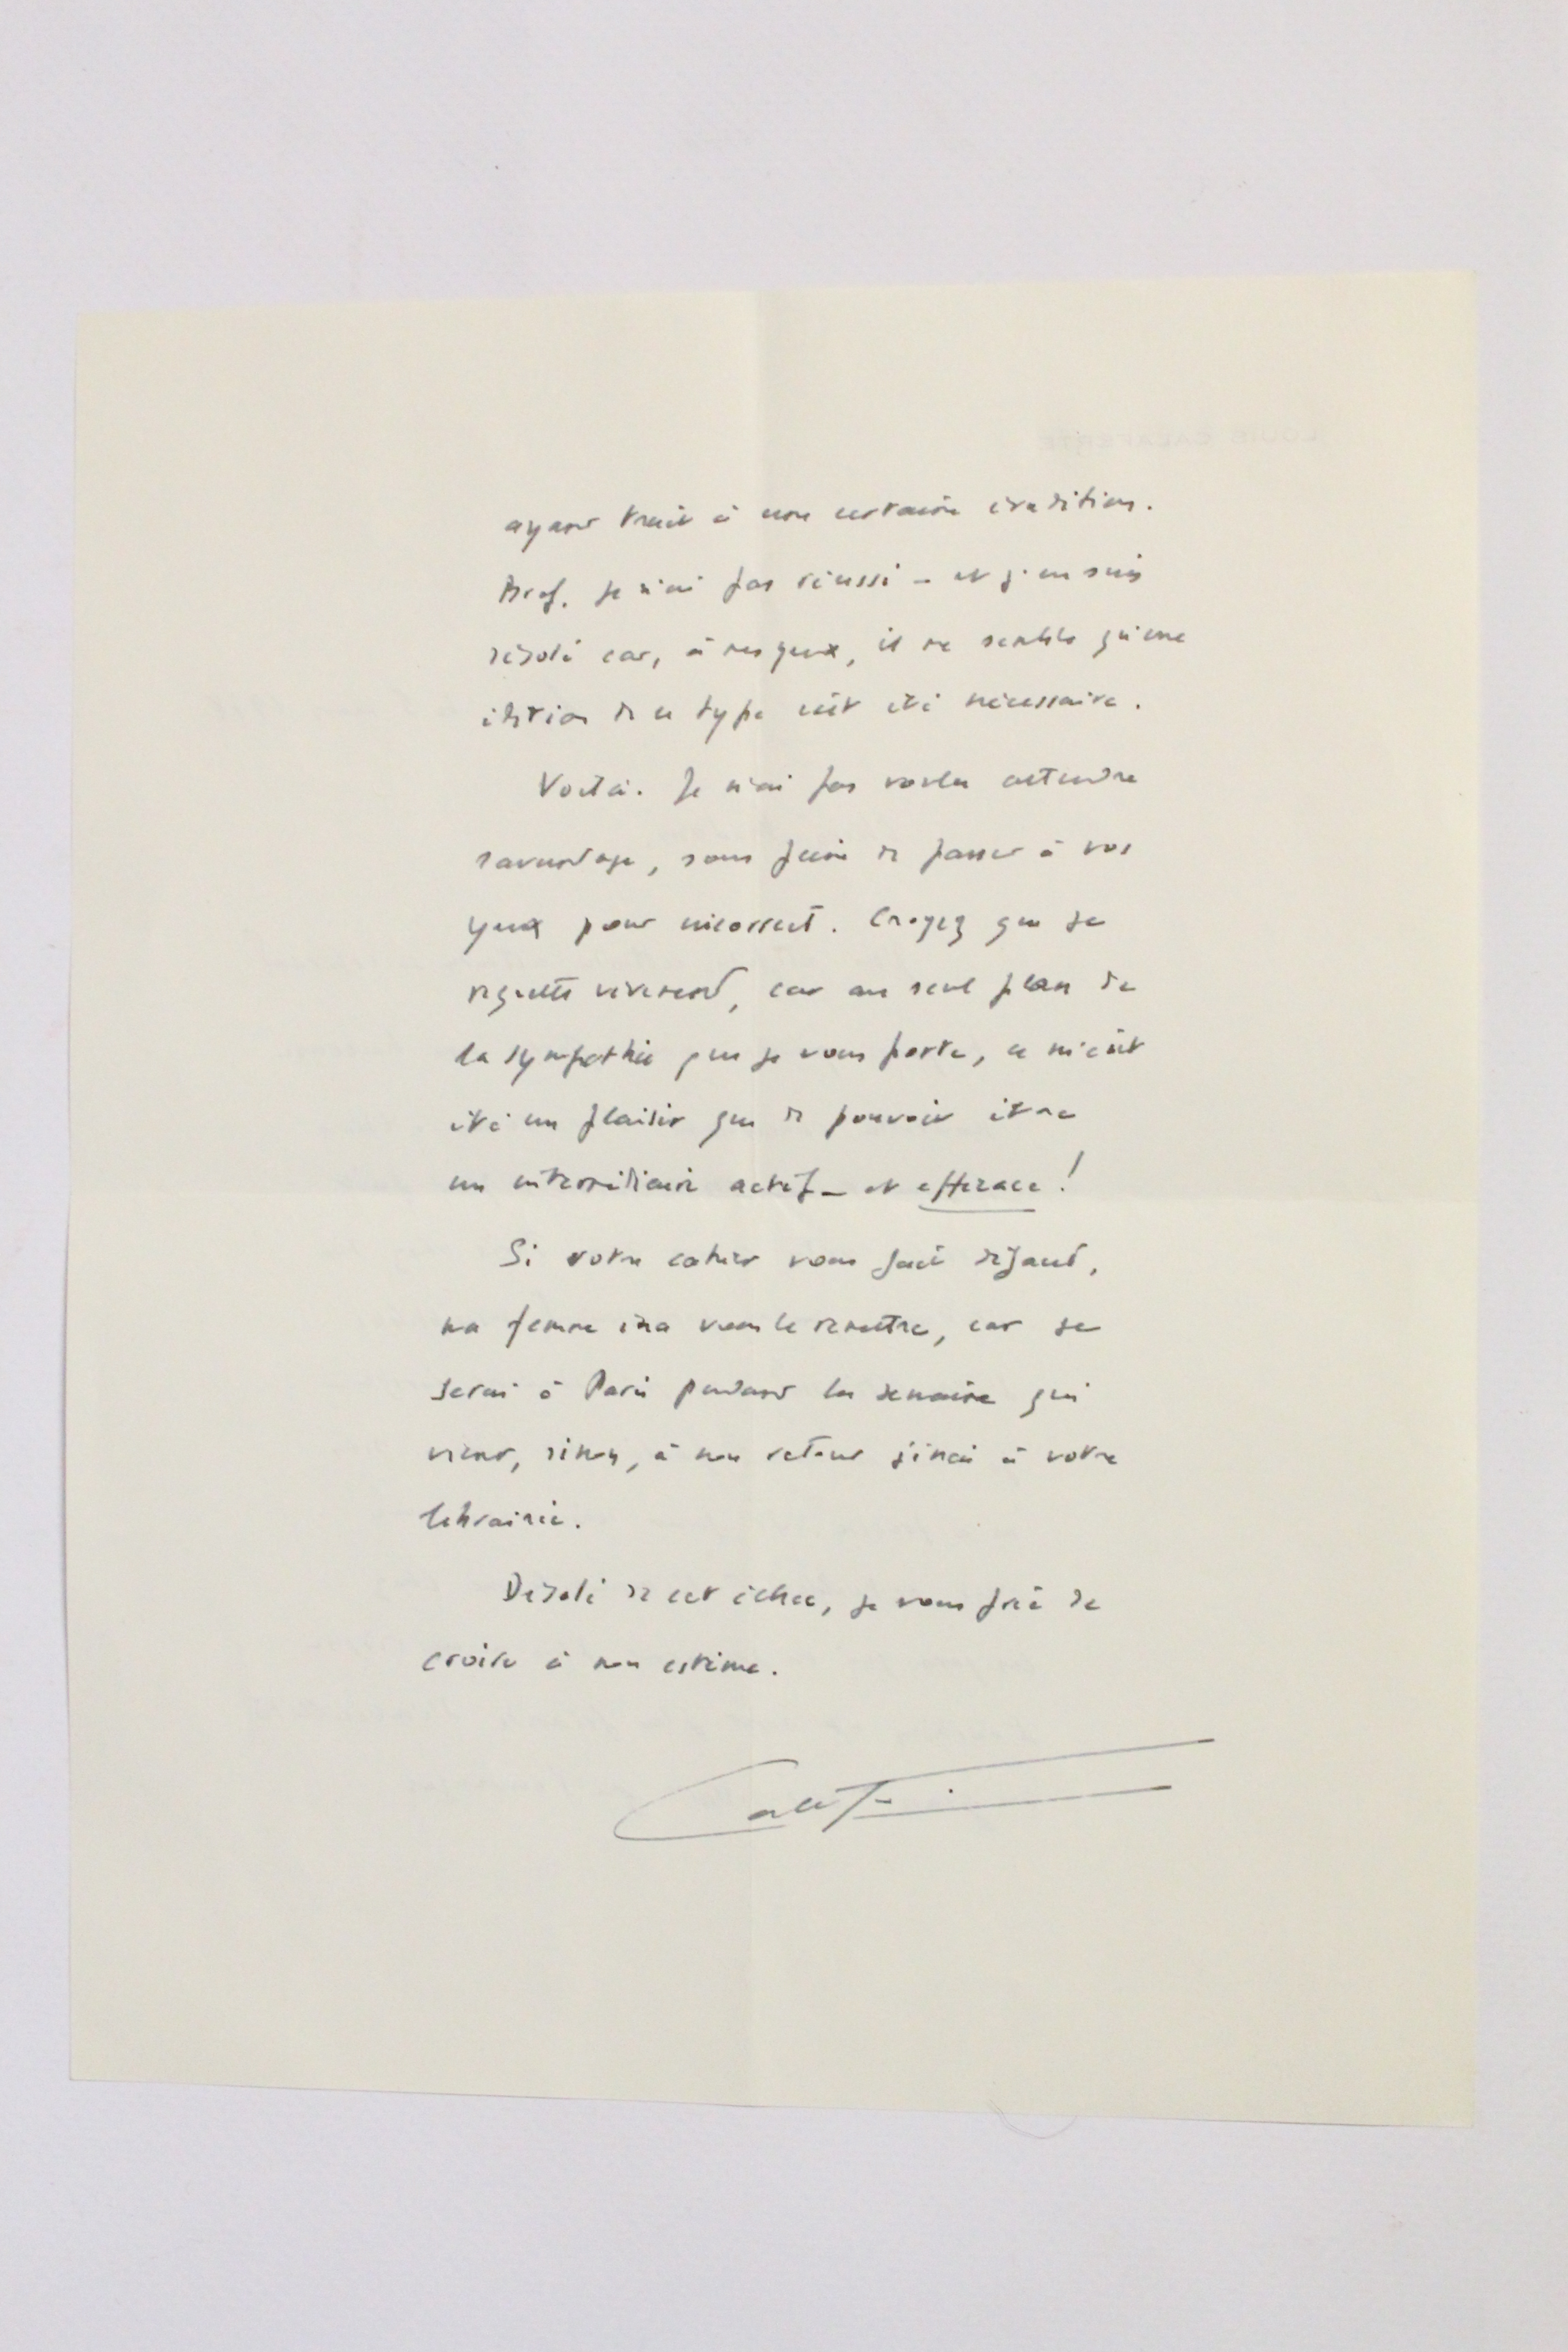 ayant trait à une certaine érudition.
Bref. Je n'ai pas réussi – et j'en suis
désolé car, à mes yeux, il me semble qu'une
édition de ce type eût été nécessaire.
Voilà. Je n'ai pas voulu attendre
davantage, sous peine de passer à vos
yeux pour incorrect. Croyez que je
regrette vivement, car au seul plan de
la sympathie que je vous porte, ce m'eût
été un plaisir que de pouvoir être
un intermédiaire actif – et efficace !
Si votre cahier vous fait défaut,
ma femme ira vous le remettre, car je
serai à Paris pendant la semaine qui
vient, sinon, à mon retour j'irai à votre
librairie.
Désolé de cet échec, je vous prie de
croire à mon estime.
Calaferte